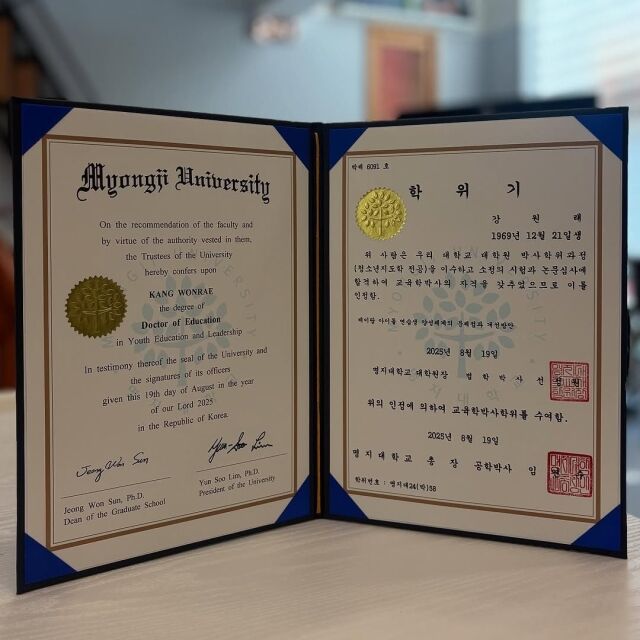 Myongji University
On the recommendation of the faculty and
by virtue of the authority vested in them,
the Trustees of the University
hereby confers upon
KANG WONRAE
the degree of
Doctor of Education
in Youth Education and Leadership
In testimony thereof the seal of the University and
the signatures of its officers
given this 19th day of August in the year
of our Lord 2025
in the Republic of Korea.
Jeong Won Sun
Yun-Soo Lim
Jeong Won Sun, Ph.D.
Dean of the Graduate School
Yun Soo Lim, Ph.D.
President of the University
박제 6091 호
학 위 기
강 원 래
1969년 12월 21일생
위 사람은 우리 대학교 대학원 박사학위과정
(청소년지도학 전공)을 이수하고 소정의 시험과 논문심사에
합격하여 교육학박사의 자격을 갖추었으므로 이를
인정함.
케이팝 아이돌 연습생 양성체계의 문제점과 개선방안
2025년 8월 19일
명지대학교 대학원장 법학박사 선 정 원
위의 인정에 의하여 교육학박사학위를 수여함.
2025년 8월 19일
명지대학교 총장 공학박사 임
학위번호 : 명지대24(박)58